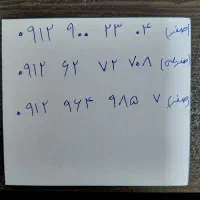 ۰۹۱۲ ۹۰۰ ۲۳ ۰۴
۰۹۱۲ ۶۲ ۷۲ ۷۰۸
۰۹۱۲ ۹۶۴ ۹۸۵ ۷